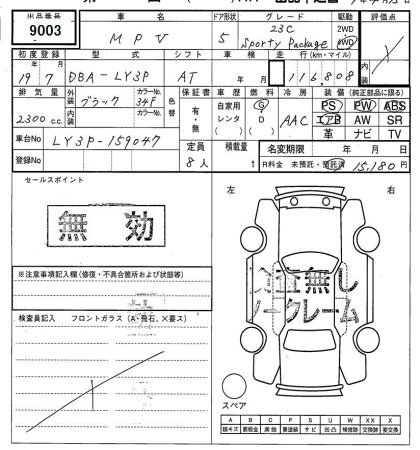 出品番号 車名 ドア形状 グレード 駆動 評価点
9003 MPV 5 23C Sporty Package 2WD AWD
初度登録 型式 シフト 車検 走行(km・マイル)
19年7月 DBA-LY3P AT 年 月 116,808
排気量 外装 ブラック カラーNo. 34F 色替 保証書 車歴 燃料 冷房 装備(純正部品に限る)
2300 c.c. 内装 カラーNo. 有・無 自家用 レンタ ( ) G D ( ) AAC PS PW ABS
エアB AW SR
革 ナビ TV
車台No LY3P-159047 定員 8人 積載量 t 名変期限 年 月 日
登録No R料金 未預託・預託済 15,180円
セールスポイント
無効
※注意事項記入欄(修復・不具合箇所および状態等)
検査員記入 フロントガラス(A・飛石、X要ス)
左 右
検査無し
ノークレーム
スペア
A B C P S U W XX X
線キズ 要板金 腐蝕 要塗装 サビ 凹凸 補修跡 交換跡 要交換